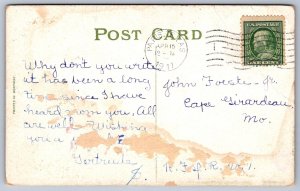 POST CARD
APR 15
Why dont you write
it has been a long
time since I have
heard from you, All
are well. Wishing
you a
Gertrude
John Foeste Jr.
Cape Girardeau
Mo.
R.F.D.